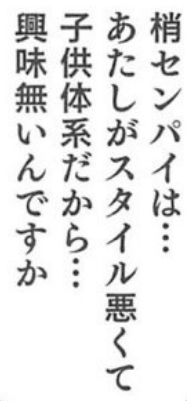 梢センパイは…
あたしがスタイル悪くて
子供体系だから…
興味無いんですか